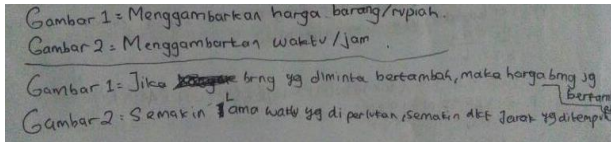 Gambar 1 = Menggambarkan harga barang/rupiah.
Gambar 2 = Menggambarkan waktu/jam.
Gambar 1 = Jika brng yg diminta bertambah, maka harga brng jg
bertam
Gambar 2 : Semakin lama waktu yg diperlukan, semakin dkt Jarak yg ditempu